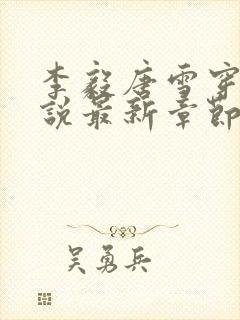 李毅唐雪穿
说最新章节
吴勇兵